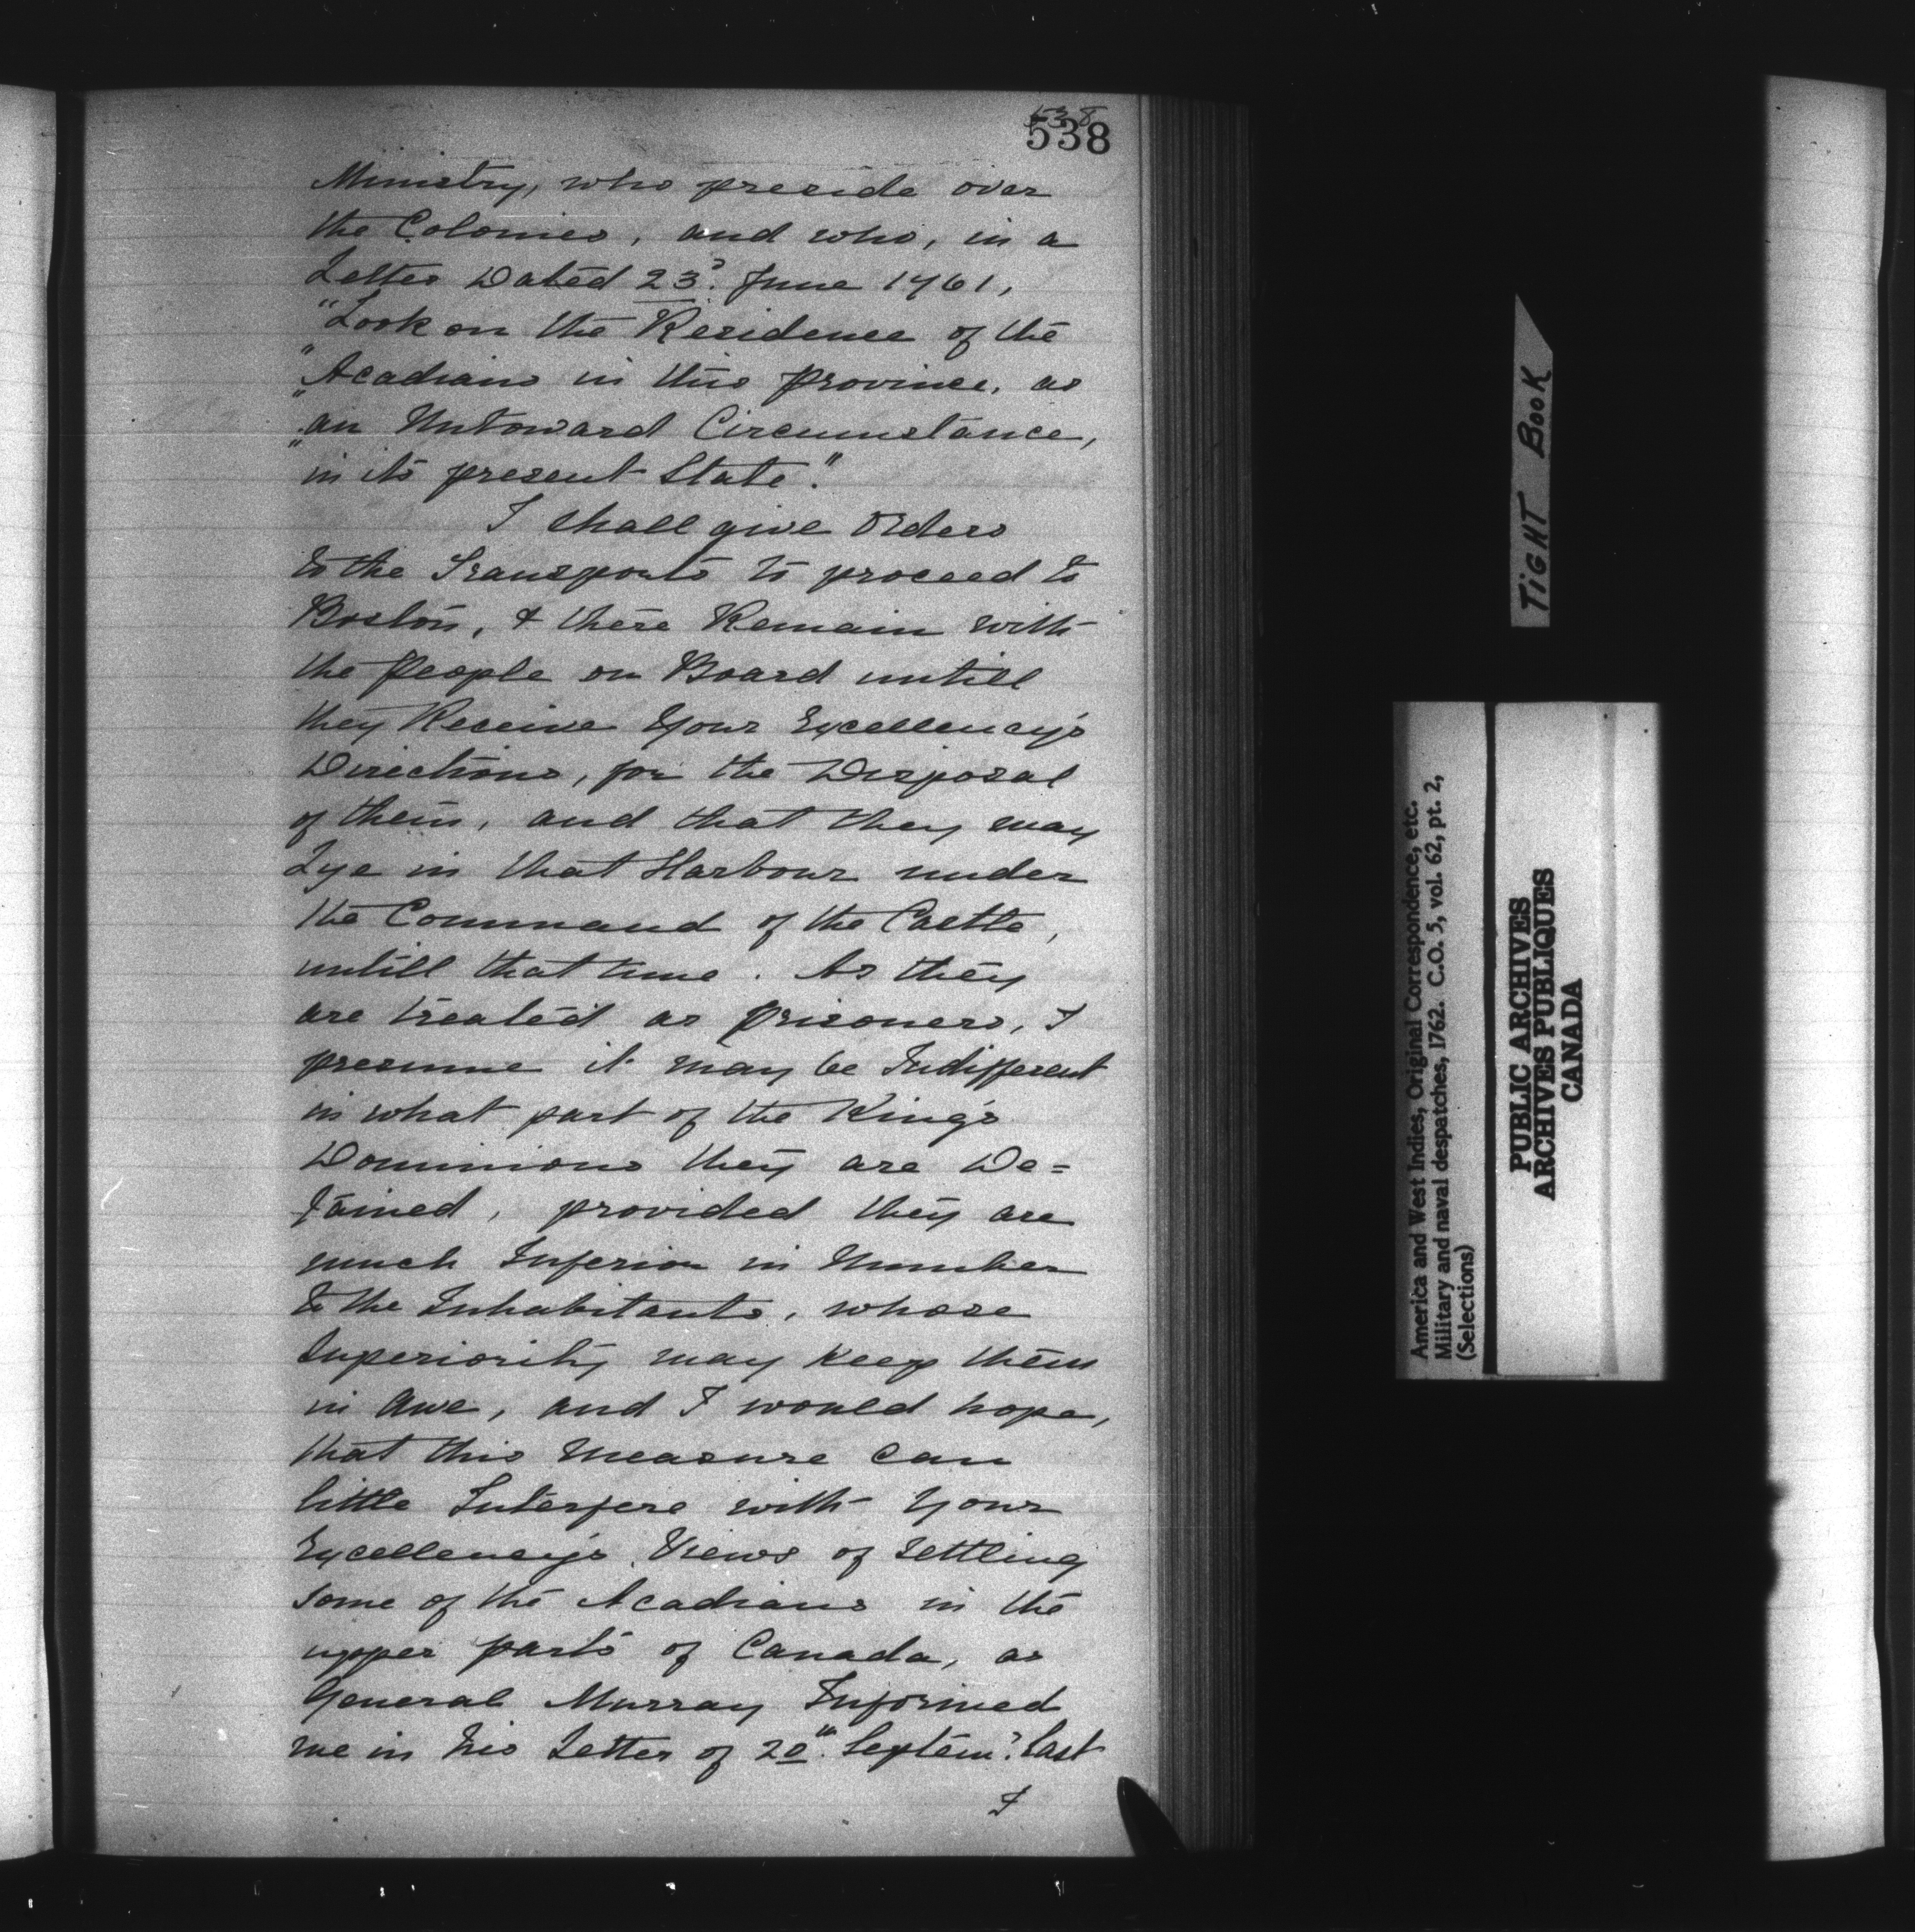 538
538
Ministry, who preside over
the Colonies, and who, in a
Letter Dated 23ᵈ. June 1761,
"Look on the Residence of the
"Acadians in this Province, as
"an Untoward Circumstance,
"in its present State."
I shall give Orders
to the Transports to proceed to
Boston, & there Remain with
the People on Board untill
they Receive Your Excellency's
Directions, for the Disposal
of them, and that they may
Lye in that Harbour under
the Command of the Castle,
untill that time. As they
are treated as Prisoners, I
presume it may be Indifferent
in what part of the King's
Dominions they are De=
tained, provided they are
much Inferior in Number
to the Inhabitants, whose
Superiority may keep them
in Awe, and I would hope,
that this Measure can
little Interfere with Your
Excellency's Views of settling
some of the Acadians in the
upper parts of Canada, as
General Murray Informed
me in his Letter of 20th. Septem.r last
I
TIGHT BOOK
America and West Indies, Original Correspondence, etc.
Military and naval despatches, 1762. C.O. 5, vol. 62, pt. 2,
(Selections)
PUBLIC ARCHIVES
ARCHIVES PUBLIQUES
CANADA